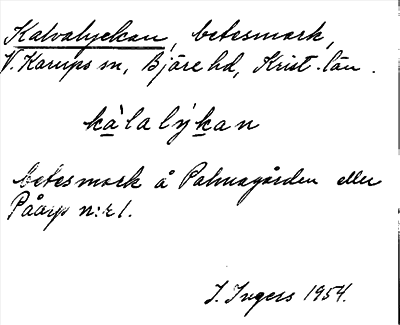 Kalvalyckan, betesmark,
V. Karups sn, Bjäre hd, Krist. län.
kàlalýkan
betesmark å Palmagården eller
Påarp n:r 1.
I. Ingers 1954.